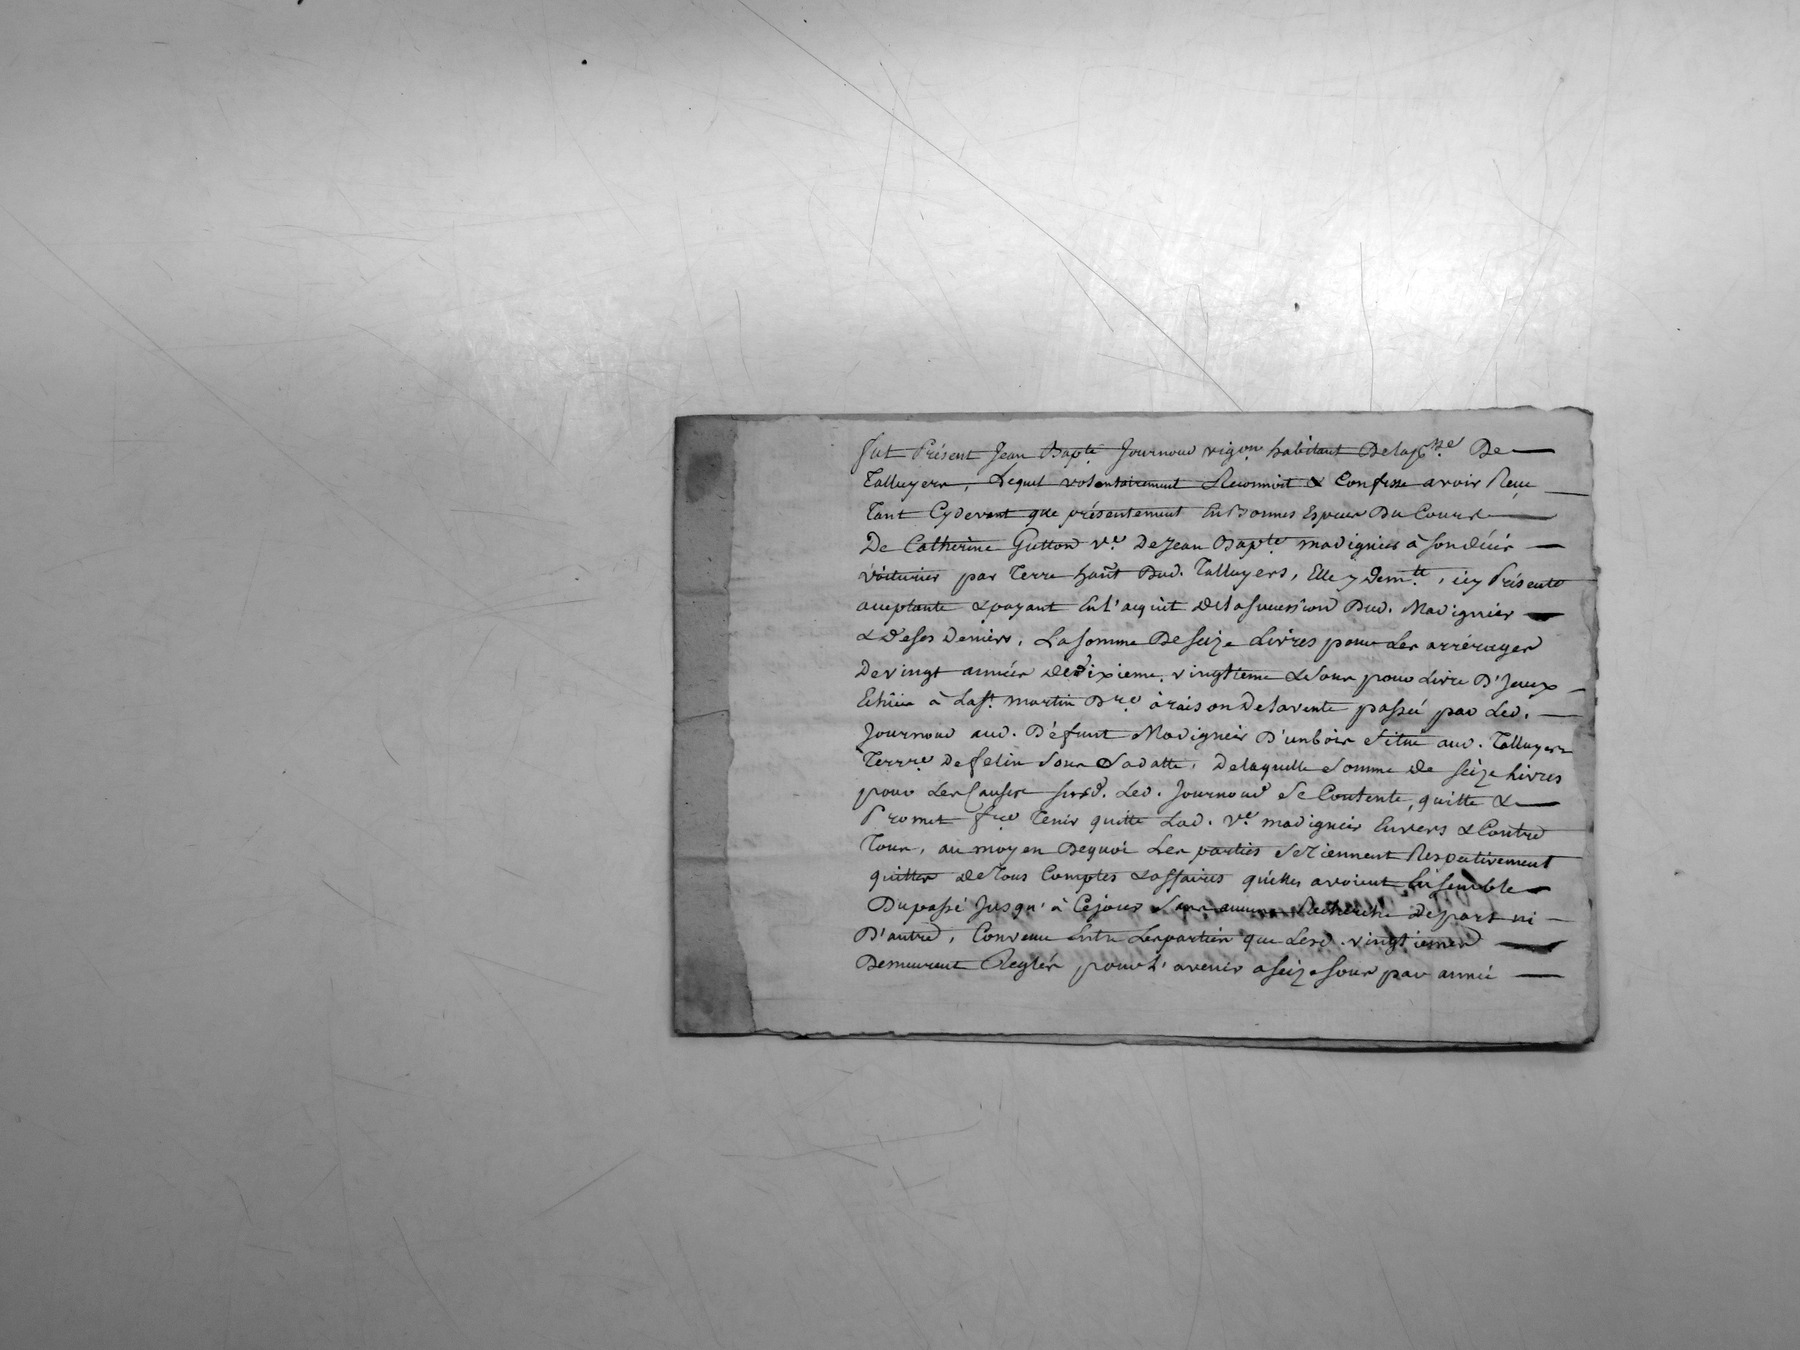 fut Présent Jean Bapte. Journoud vigon habitant Delaprse. De
Talluyers, Lequel volontairement Reconnoit & Confesse avoir Reçu
Tant Cydevant que présentement En Bonnes Especes Du Cours
De Catherine Gutton ve. De Jean Bapte. madignier à son décés
voiturier par Terre hant Dud. Talluyers, Elle y demte., icy Présente
acceptante & payant En l'acquit delasuccession Dud. Madignier
& de ses Deniers, La somme De seize Livres pour Les arrérages
De vingt années de dixieme, vingtieme & sous pour Livre D'Iceux
Echües à La st. martin Dre. àraison Delavente passée par Led.
Journoud aud. Défunt Madignier D'un bois situé aud. Talluyers
Terrre. De felin sous Dadatte, De laquelle somme de seize Livres
pour Les Causes susd. Led. Journoud se Contente, quitte &
Promet fre Tenir quitte Lad. ve. madignier Envers & Contre
Tous, au moyen Dequoi Les parties se Tiennent Respectivement
quittes de Tous Comptes & affaires qu'elles avoient Ensemble
Du passé Jusqu'à Cejour Sans aucune Recherche de part ni
D'autre, Convenu Entre Lesparties que Lesd. vingtiemes
Demeurent Reglés pour L'avenir a seize sous par année